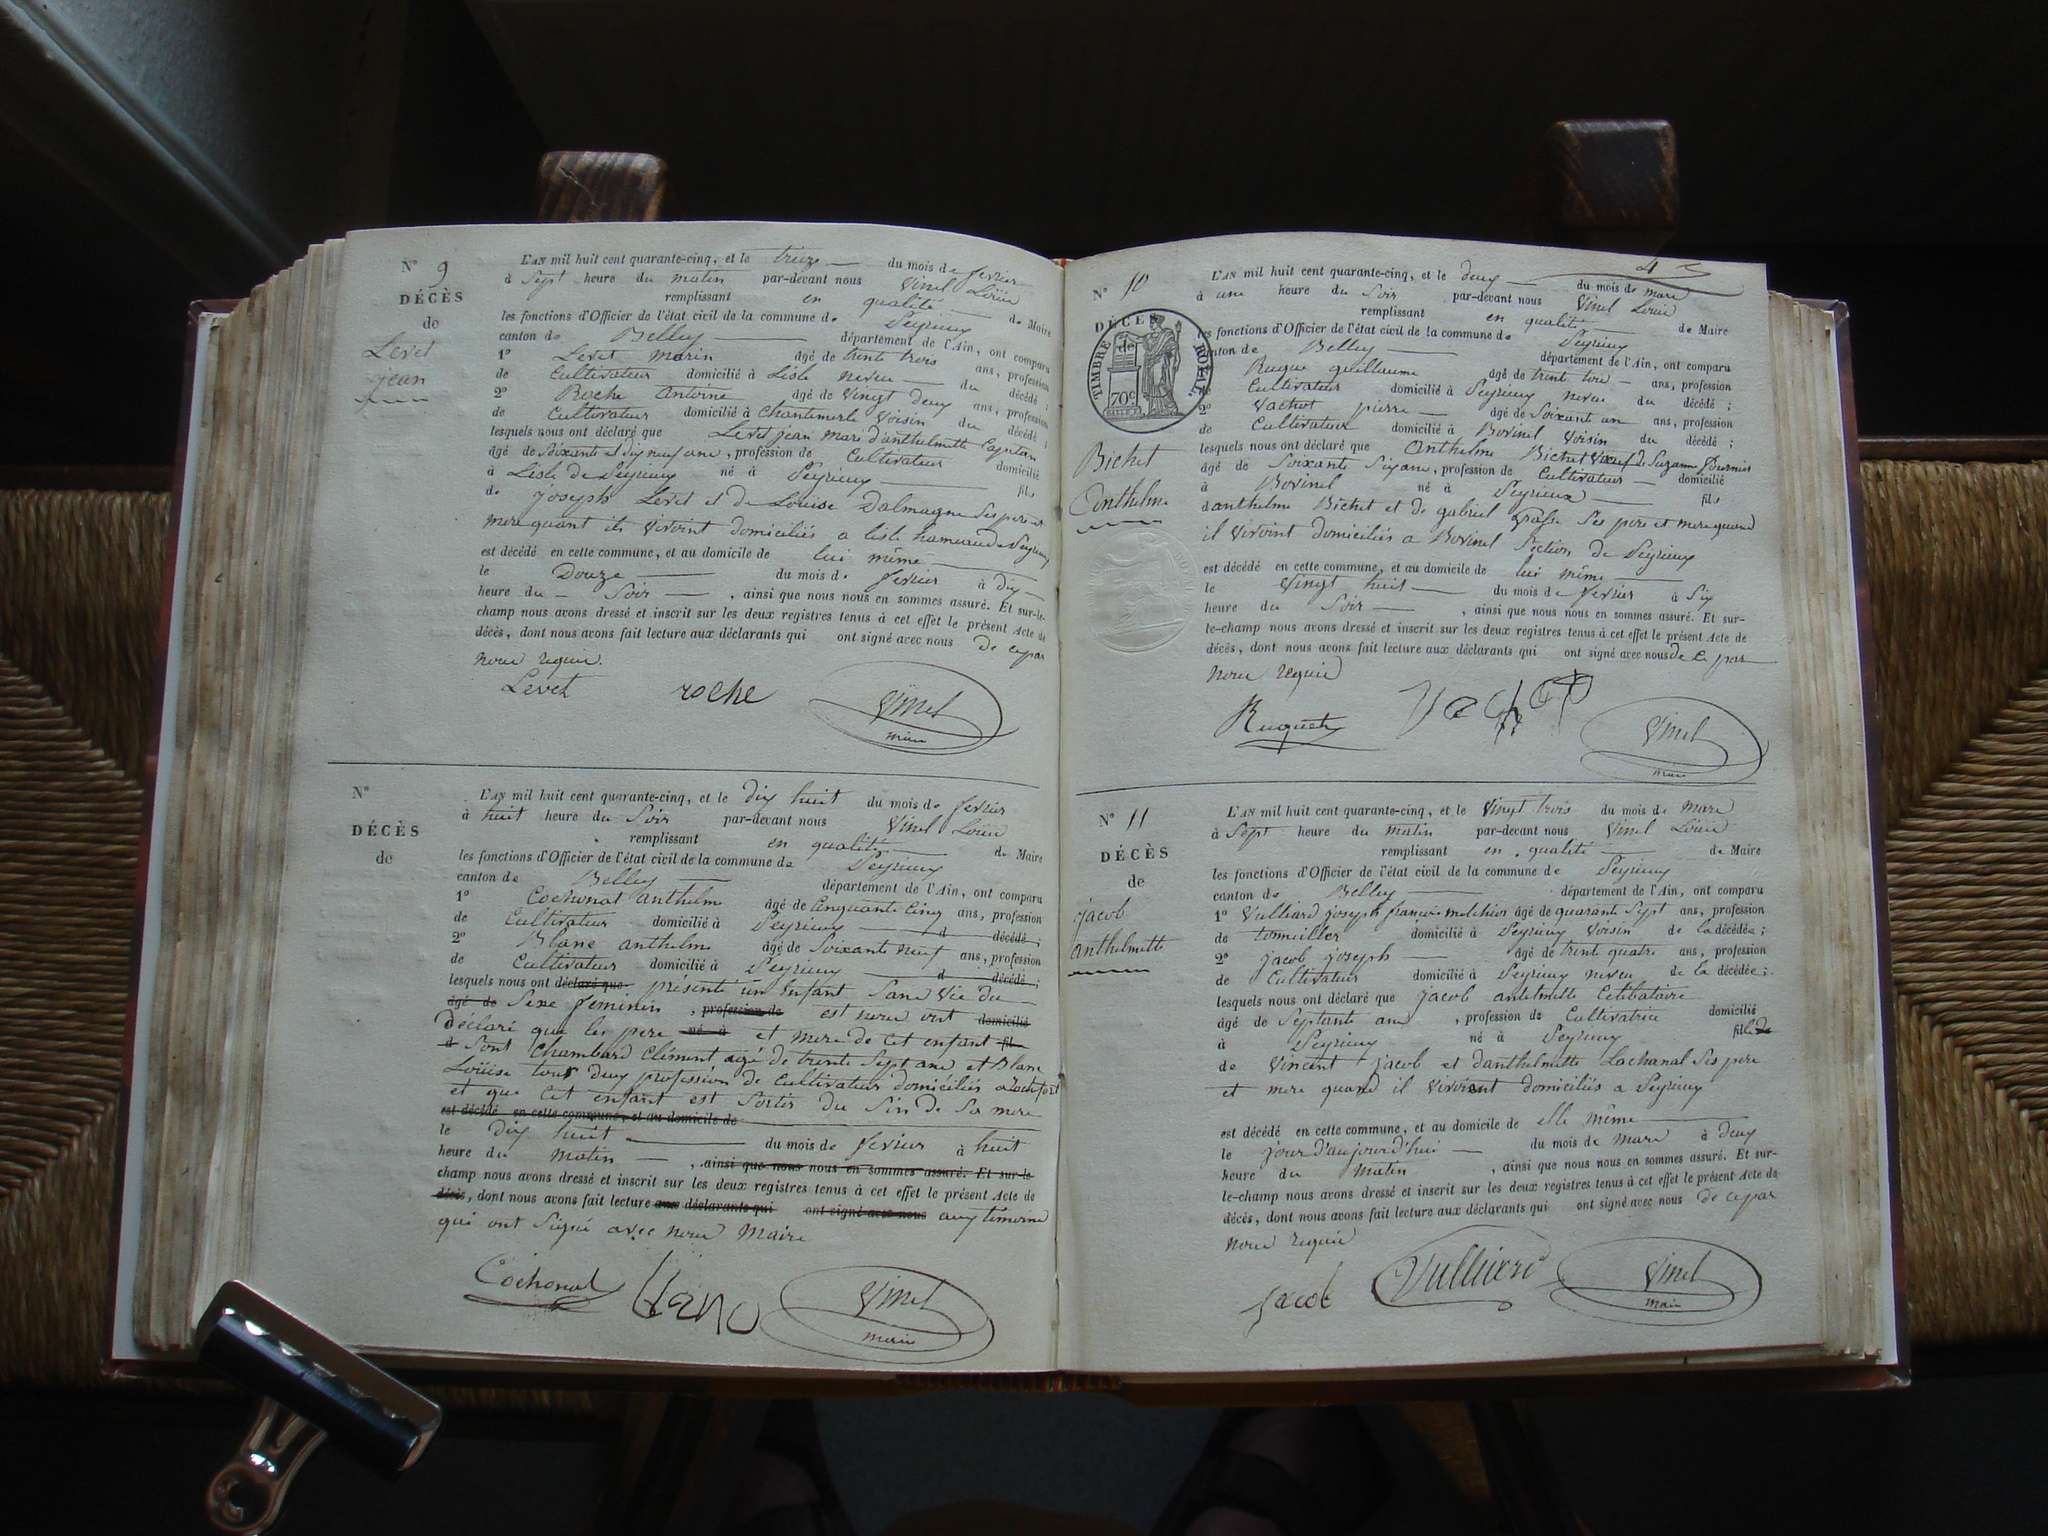 N° 9
DÉCÈS
de
Levet
jean
L'AN mil huit cent quarante-cinq, et le treize du mois de fevrier
à Sept heure du matin par-devant nous Vinel Loüis
remplissant en qualité de Maire
les fonctions d'Officier de l'état civil de la commune de Peyrieux
canton de Belley département de l'Ain, ont comparu
1° Levet marin âgé de trente trois ans, profession
de Cultivateur domicilié à Lisle neveu du décédé ;
2° Roche Antoine âgé de Vingt deux ans, profession
de Cultivateur domicilié à Chantemerle Voisin du décédé ;
lesquels nous ont déclaré que Levet jean mari d'anthelmette
âgé de Soixante et dix neuf ans, profession de Cultivateur domicilié
à Lisle de Peyrieux né à Peyrieux fils
de joseph Levet et de Loüise Dalmagne Ses pere et
mere quant ils Vivoint domiciliés a lisle hameau de Peyrieux
est décédé en cette commune, et au domicile de lui même
le Douze du mois de fevrier à dix
heure du Soir, ainsi que nous nous en sommes assuré. Et sur-le-
champ nous avons dressé et inscrit sur les deux registres tenus à cet effet le présent Acte de
décès, dont nous avons fait lecture aux déclarants qui ont signé avec nous de ce par
nous requis.
Levet roche Vinel
maire
N°
DÉCÈS
de
L'AN mil huit cent quarante-cinq, et le dix huit du mois de fevrier
à huit heure du Soir par-devant nous Vinel Loüis
remplissant en qualité de Maire
les fonctions d'Officier de l'état civil de la commune de Peyrieux
canton de Belley département de l'Ain, ont comparu
1° Cochonat anthelme âgé de Cinquante Cinq ans, profession
de Cultivateur domicilié à Peyrieux d décédé ;
2° Blanc anthelme âgé de Soixante neuf ans, profession
de Cultivateur domicilié à Peyrieux d décédé ;
lesquels nous ont déclaré que présenté un Enfant Sans Vie du
âgé de Sexe feminin, profession de est nous ont domicilié
déclaré que les pere né à et mere de Cet enfant fil
d Sont Chambard Clément agé de trente Sept ans et Blanc
Loüise tous deux profession de Cultivateur domiciliés a
et que Cet enfant est Sortis du Sin de Sa mere
est décédé en cette commune, et au domicile de
le dix huit du mois de fevrier à huit
heure du matin, ainsi que nous nous en sommes assuré. Et sur-le-
champ nous avons dressé et inscrit sur les deux registres tenus à cet effet le présent Acte de
décès, dont nous avons fait lecture aux déclarants qui ont signé avec nous aux témoins
qui ont Signé avec nous Maire
Cochonat Blanc Vinel
maire
N° 10
DÉCÈS
de
TIMBRE ROYAL
70c
Bichet
Anthelme
L'AN mil huit cent quarante-cinq, et le deux du mois de mars
à une heure du Soir par-devant nous Vinel Loüis
remplissant en qualité de Maire
les fonctions d'Officier de l'état civil de la commune de Peyrieux
canton de Belley département de l'Ain, ont comparu
guillaume âgé de trente ans, profession
Cultivateur domicilié à Peyrieux neveu du décédé ;
2° Vachot pierre âgé de Soixante un ans, profession
de Cultivateur domicilié à Bovinel Voisin du décédé ;
lesquels nous ont déclaré que Anthelme Bichet Vœuf de Suzanne fournier
âgé de Soixante Six ans, profession de Cultivateur domicilié
à Bovinel né à Peyrieux fils
d'anthelme Bichet et de gabriel Ses pere et mere quand
il Vivoint domiciliés a Bovinel Section de Peyrieux
est décédé en cette commune, et au domicile de lui même
le Vingt huit du mois de fevrier à Six
heure du Soir, ainsi que nous nous en sommes assuré. Et sur-
le-champ nous avons dressé et inscrit sur les deux registres tenus à cet effet le présent Acte de
décès, dont nous avons fait lecture aux déclarants qui ont signé avec nous de ce par
nous requis
Ruquet Vachot Vinel
maire
N° 11
DÉCÈS
de
jacob
anthelmette
L'AN mil huit cent quarante-cinq, et le Vingt trois du mois de mars
à Sept heure du matin par-devant nous Vinel Loüis
remplissant en qualité de Maire
les fonctions d'Officier de l'état civil de la commune de Peyrieux
canton de Belley département de l'Ain, ont comparu
1° Vulliard joseph françois melchior âgé de quarante Sept ans, profession
de domicilié à Peyrieux Voisin de la décédée ;
2° jacob joseph âgé de trente quatre ans, profession
de Cultivateur domicilié à Peyrieux neveu de la décédée ;
lesquels nous ont déclaré que jacob antelmette Celibataire
âgé de Septante ans, profession de Cultivatrice domicilié
à Peyrieux né à Peyrieux fille de
de Vincent jacob et danthelmette Lachanal Ses pere
et mere quand il Vivoient domiciliés a Peyrieux
est décédé en cette commune, et au domicile de elle même
le jour d'aujourd'hui du mois de mars à deux
heure du matin, ainsi que nous nous en sommes assuré. Et sur-
le-champ nous avons dressé et inscrit sur les deux registres tenus à cet effet le présent Acte de
décès, dont nous avons fait lecture aux déclarants qui ont signé avec nous de ce par
nous requis
Jacob Vulliard Vinel
maire